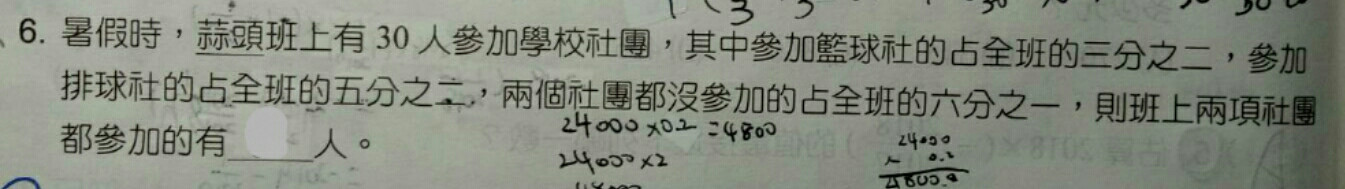 6. 暑假時，蒜頭班上有 30 人參加學校社團，其中參加籃球社的占全班的三分之二，參加
排球社的占全班的五分之二，兩個社團都沒參加的占全班的六分之一，則班上兩項社團
都參加的有____人。
24000×0.2=4800
24000×2
24000
× 0.2
4800.0